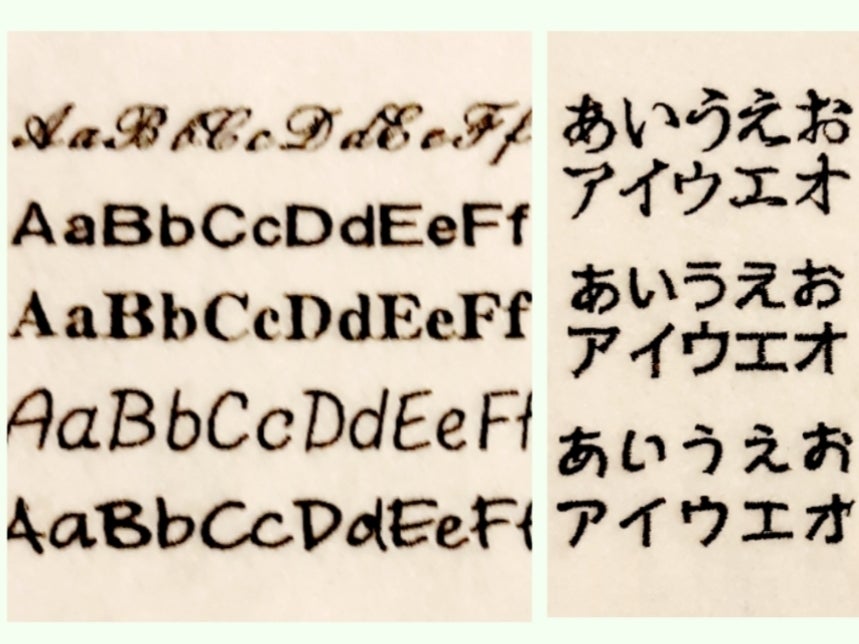 AaBbCcDdEeFf
AaBbCcDdEeFf
AaBbCcDdEeFf
AaBbCcDdEeFf
AaBbCcDdEeFf
あいうえお
アイウエオ
あいうえお
アイウエオ
あいうえお
アイウエオ